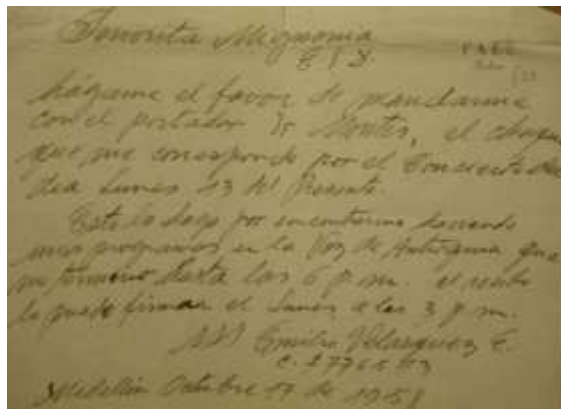 Señorita Mignonia
E S D.
PAEZ
hágame el favor de mandarme
con el portador Sr Montes, el cheque
que me corresponde por el Concierto del
día Lunes 13 del Presente.
Esto lo hago por encontrarme haciendo
unos programas en la Voz de Antioquia que
termino hasta las 6 p.m. el recibo
lo puedo firmar el Lunes a las 3 p.m.
Emilio Velasquez E.
Medellin Octubre 17 de 1951